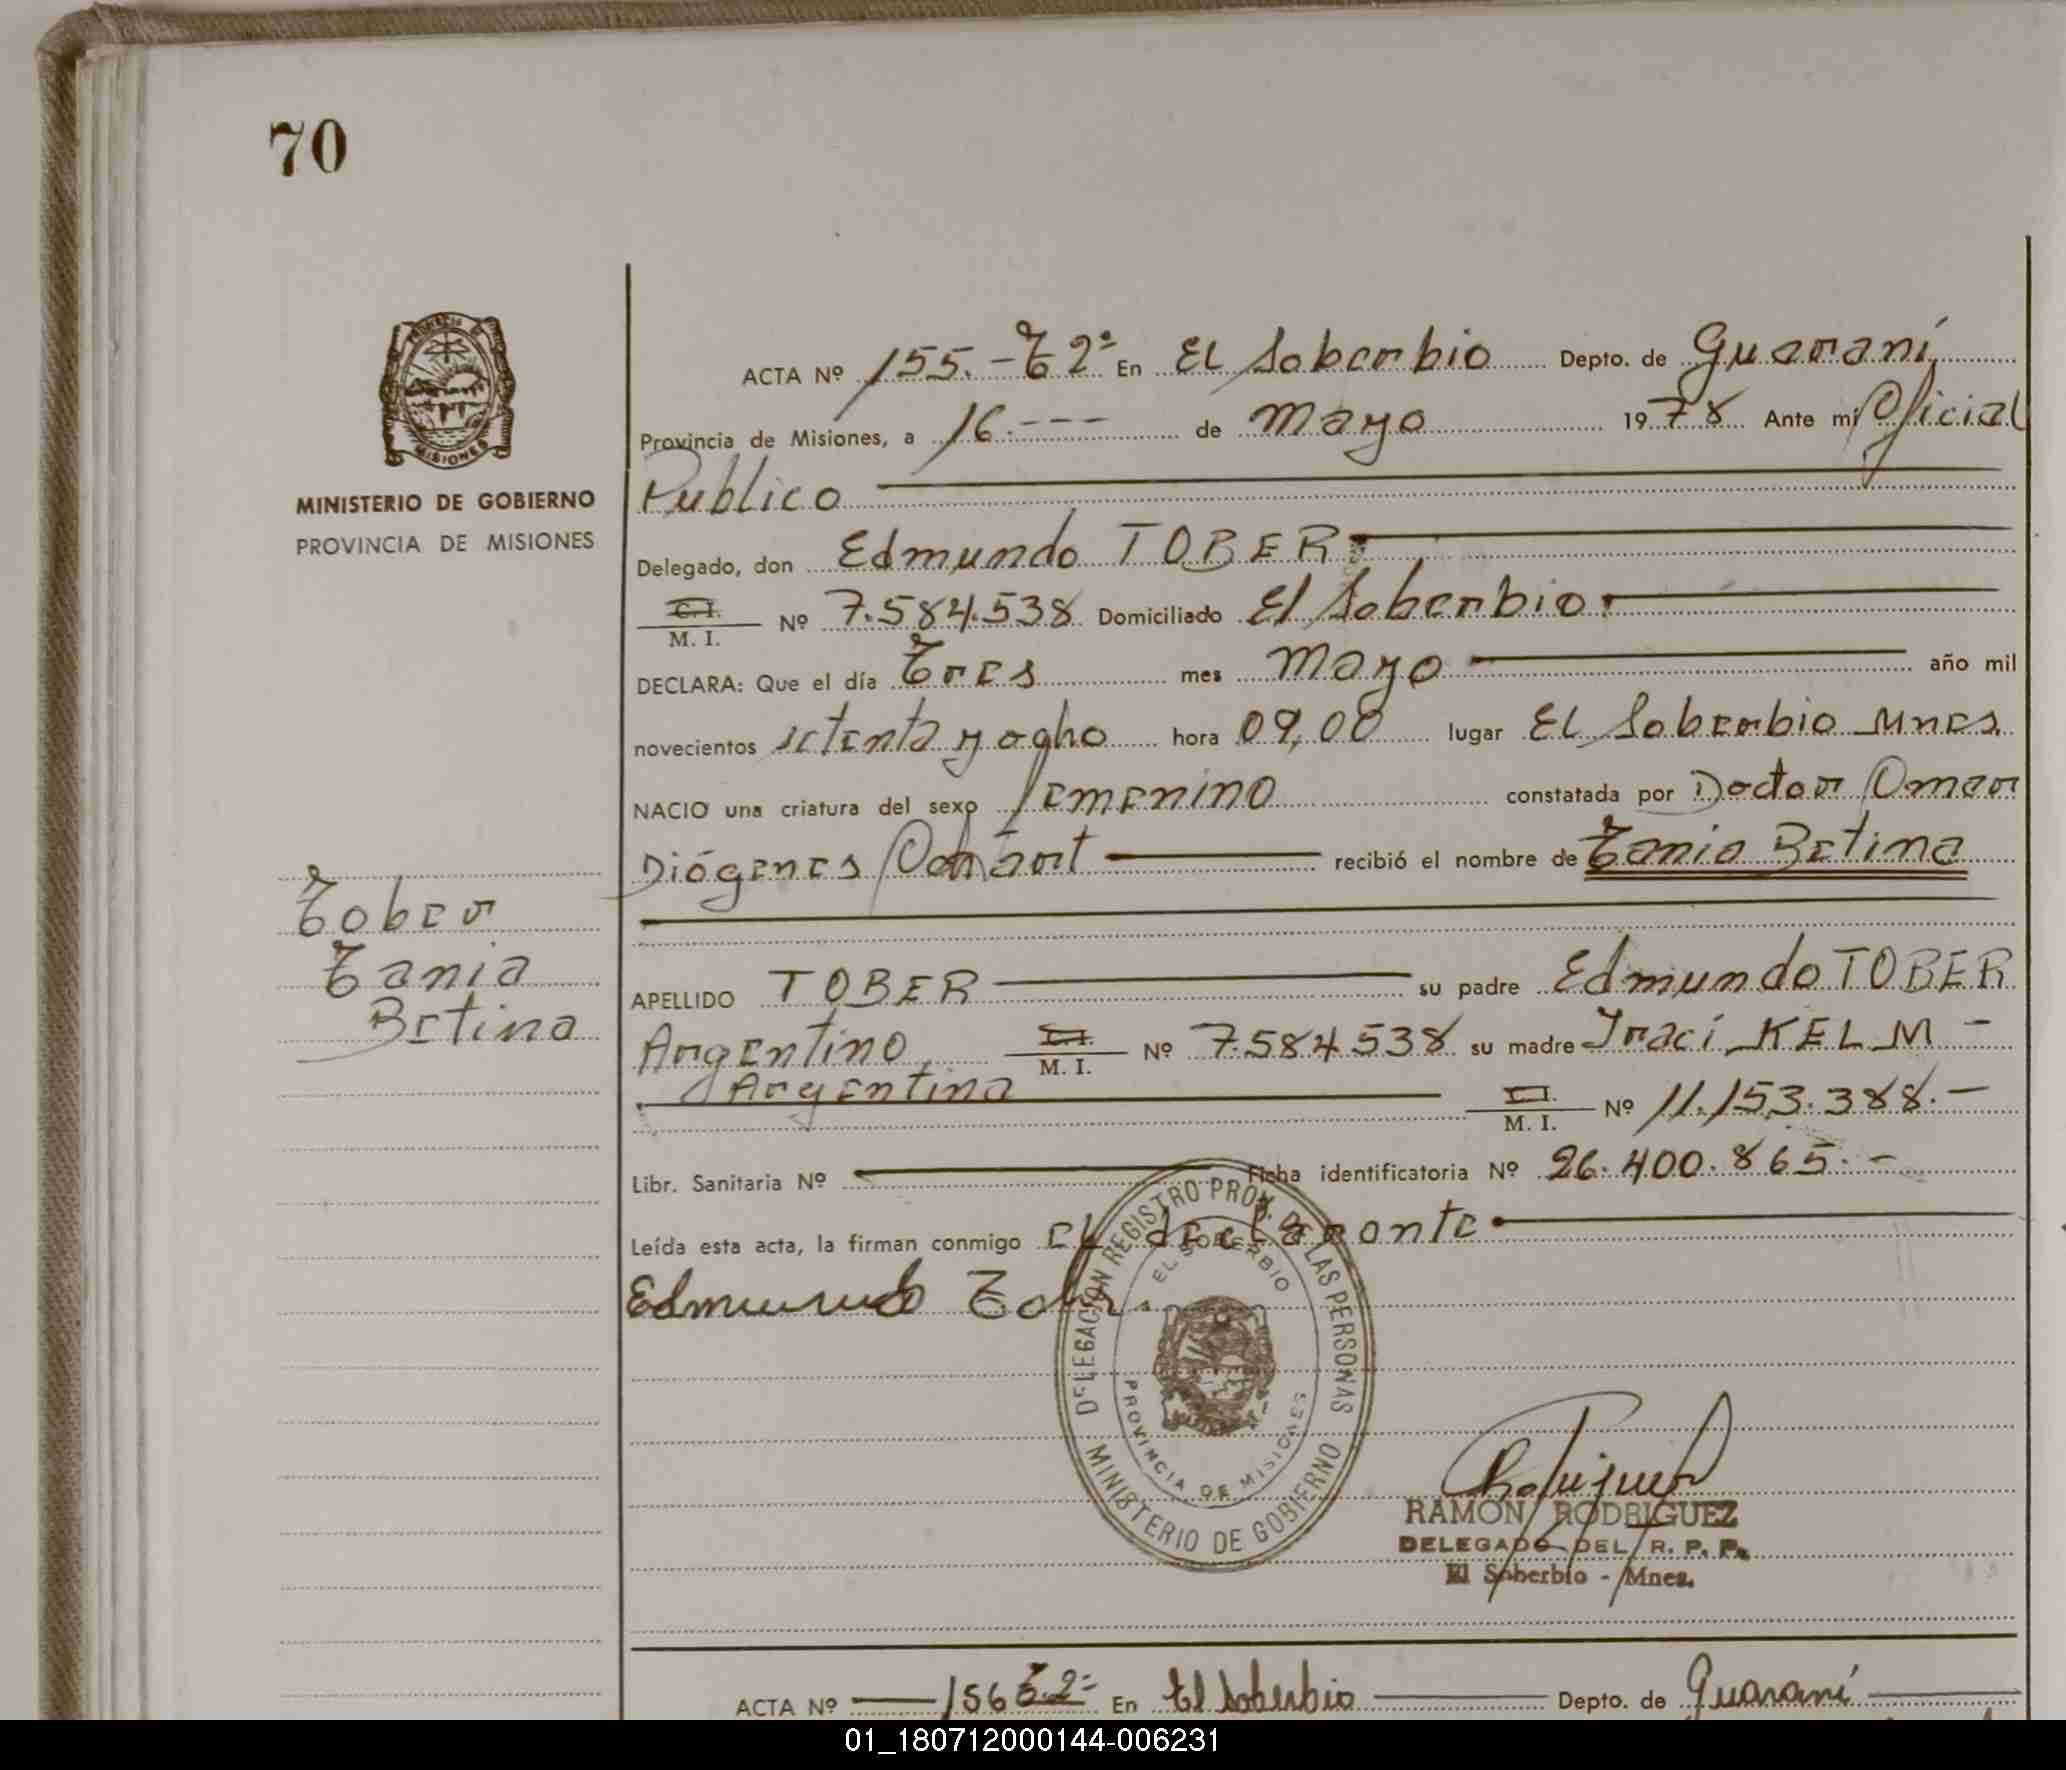 70
PROVINCIA DE MISIONES
MINISTERIO DE GOBIERNO
PROVINCIA DE MISIONES
ACTA Nº 155.- T 2º En El Soberbio Depto. de Guaraní
Provincia de Misiones, a 16.--- de Mayo 1978 Ante mi Oficial
Publico
Delegado, don Edmundo TOBER
C. I. M. I. Nº 7.584.538 Domiciliado El Soberbio.
DECLARA: Que el día Tres mes Mayo año mil
novecientos setenta y ocho hora 09,00 lugar El Soberbio Mnes.
NACIO una criatura del sexo femenino constatada por Doctor Omar
Diógenes recibió el nombre de Tania Betina
Tober
Tania
Betina
APELLIDO TOBER su padre Edmundo TOBER
Argentino C. I. M. I. Nº 7.584.538 su madre Iraci KELM -
Argentina C. I. M. I. Nº 11.153.388.-
Libr. Sanitaria Nº Ficha identificatoria Nº 26.400.865.-
Leída esta acta, la firman conmigo el declarante
Edmundo Tober.
DELEGACION REGISTRO PROV. DE LAS PERSONAS
EL SOBERBIO
PROVINCIA DE MISIONES
MINISTERIO DE GOBIERNO
RAMON RODRIGUEZ
DELEGADO DEL R. P. P.
El Soberbio - Mnes.
ACTA Nº 156 T.2º En El Soberbio Depto. de Guaraní
01_180712000144-006231